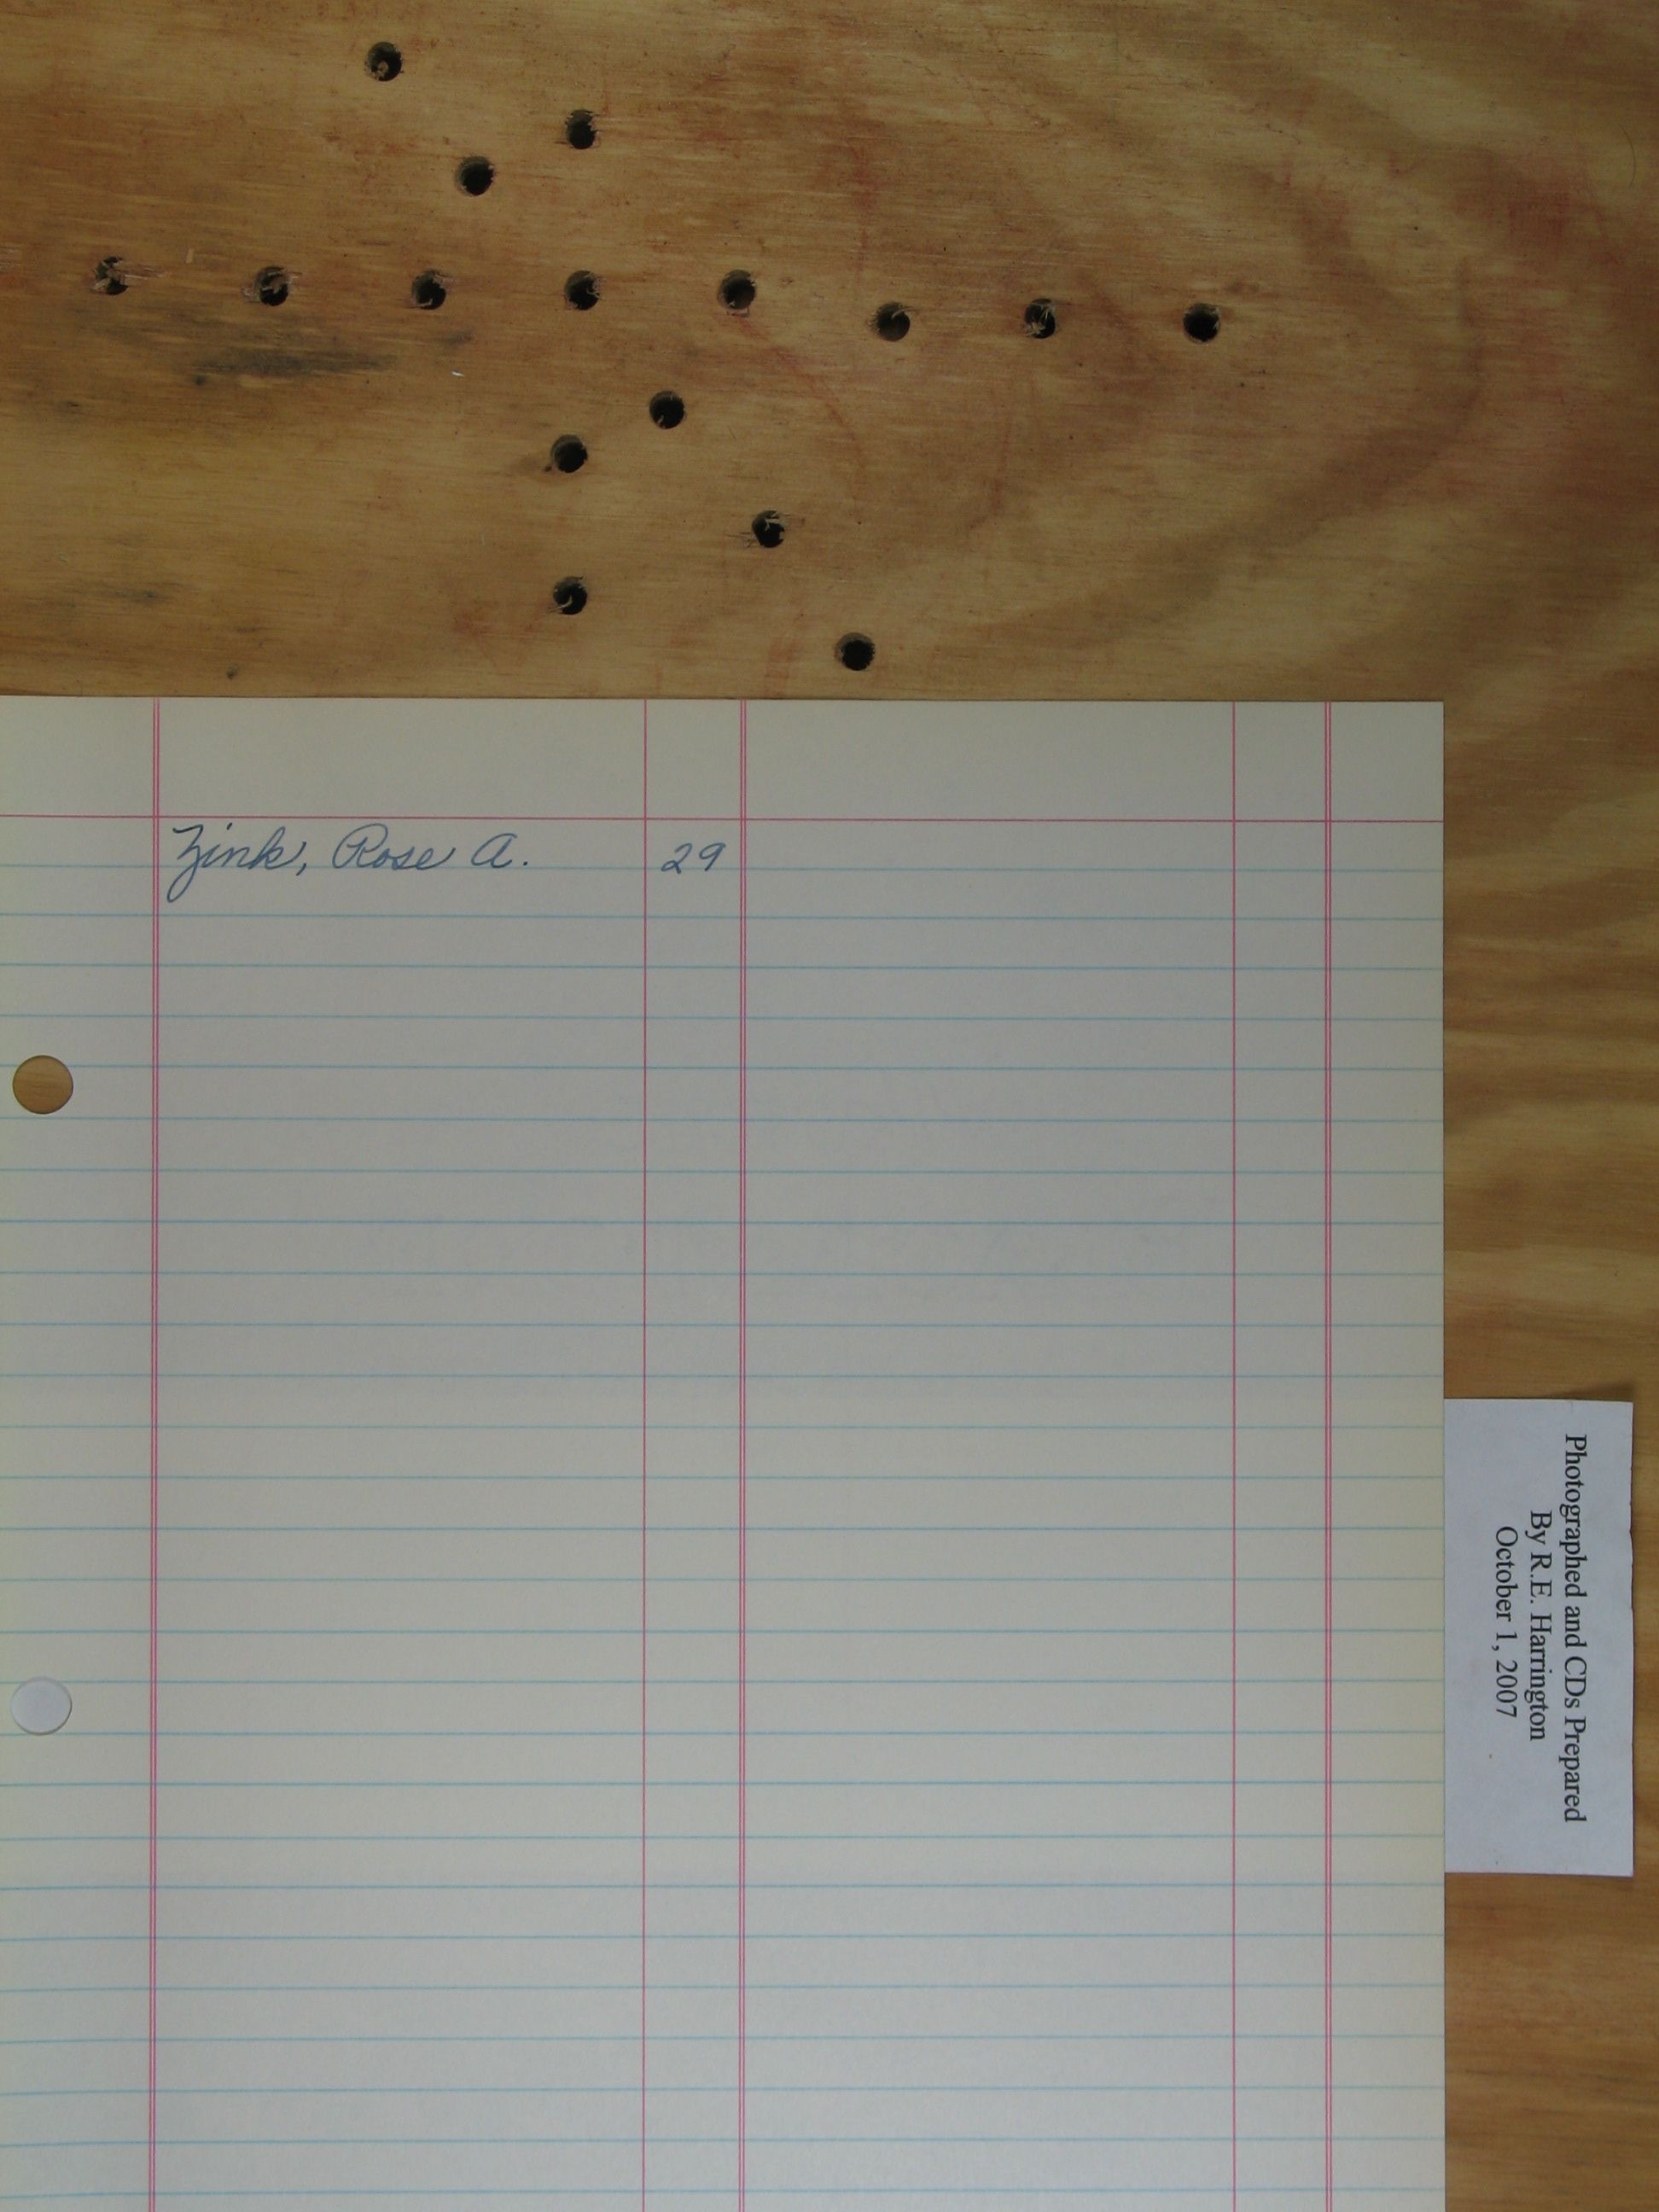 Zink, Rose A. 29
Photographed and CDs Prepared
By R.E. Harrington
October 1, 2007